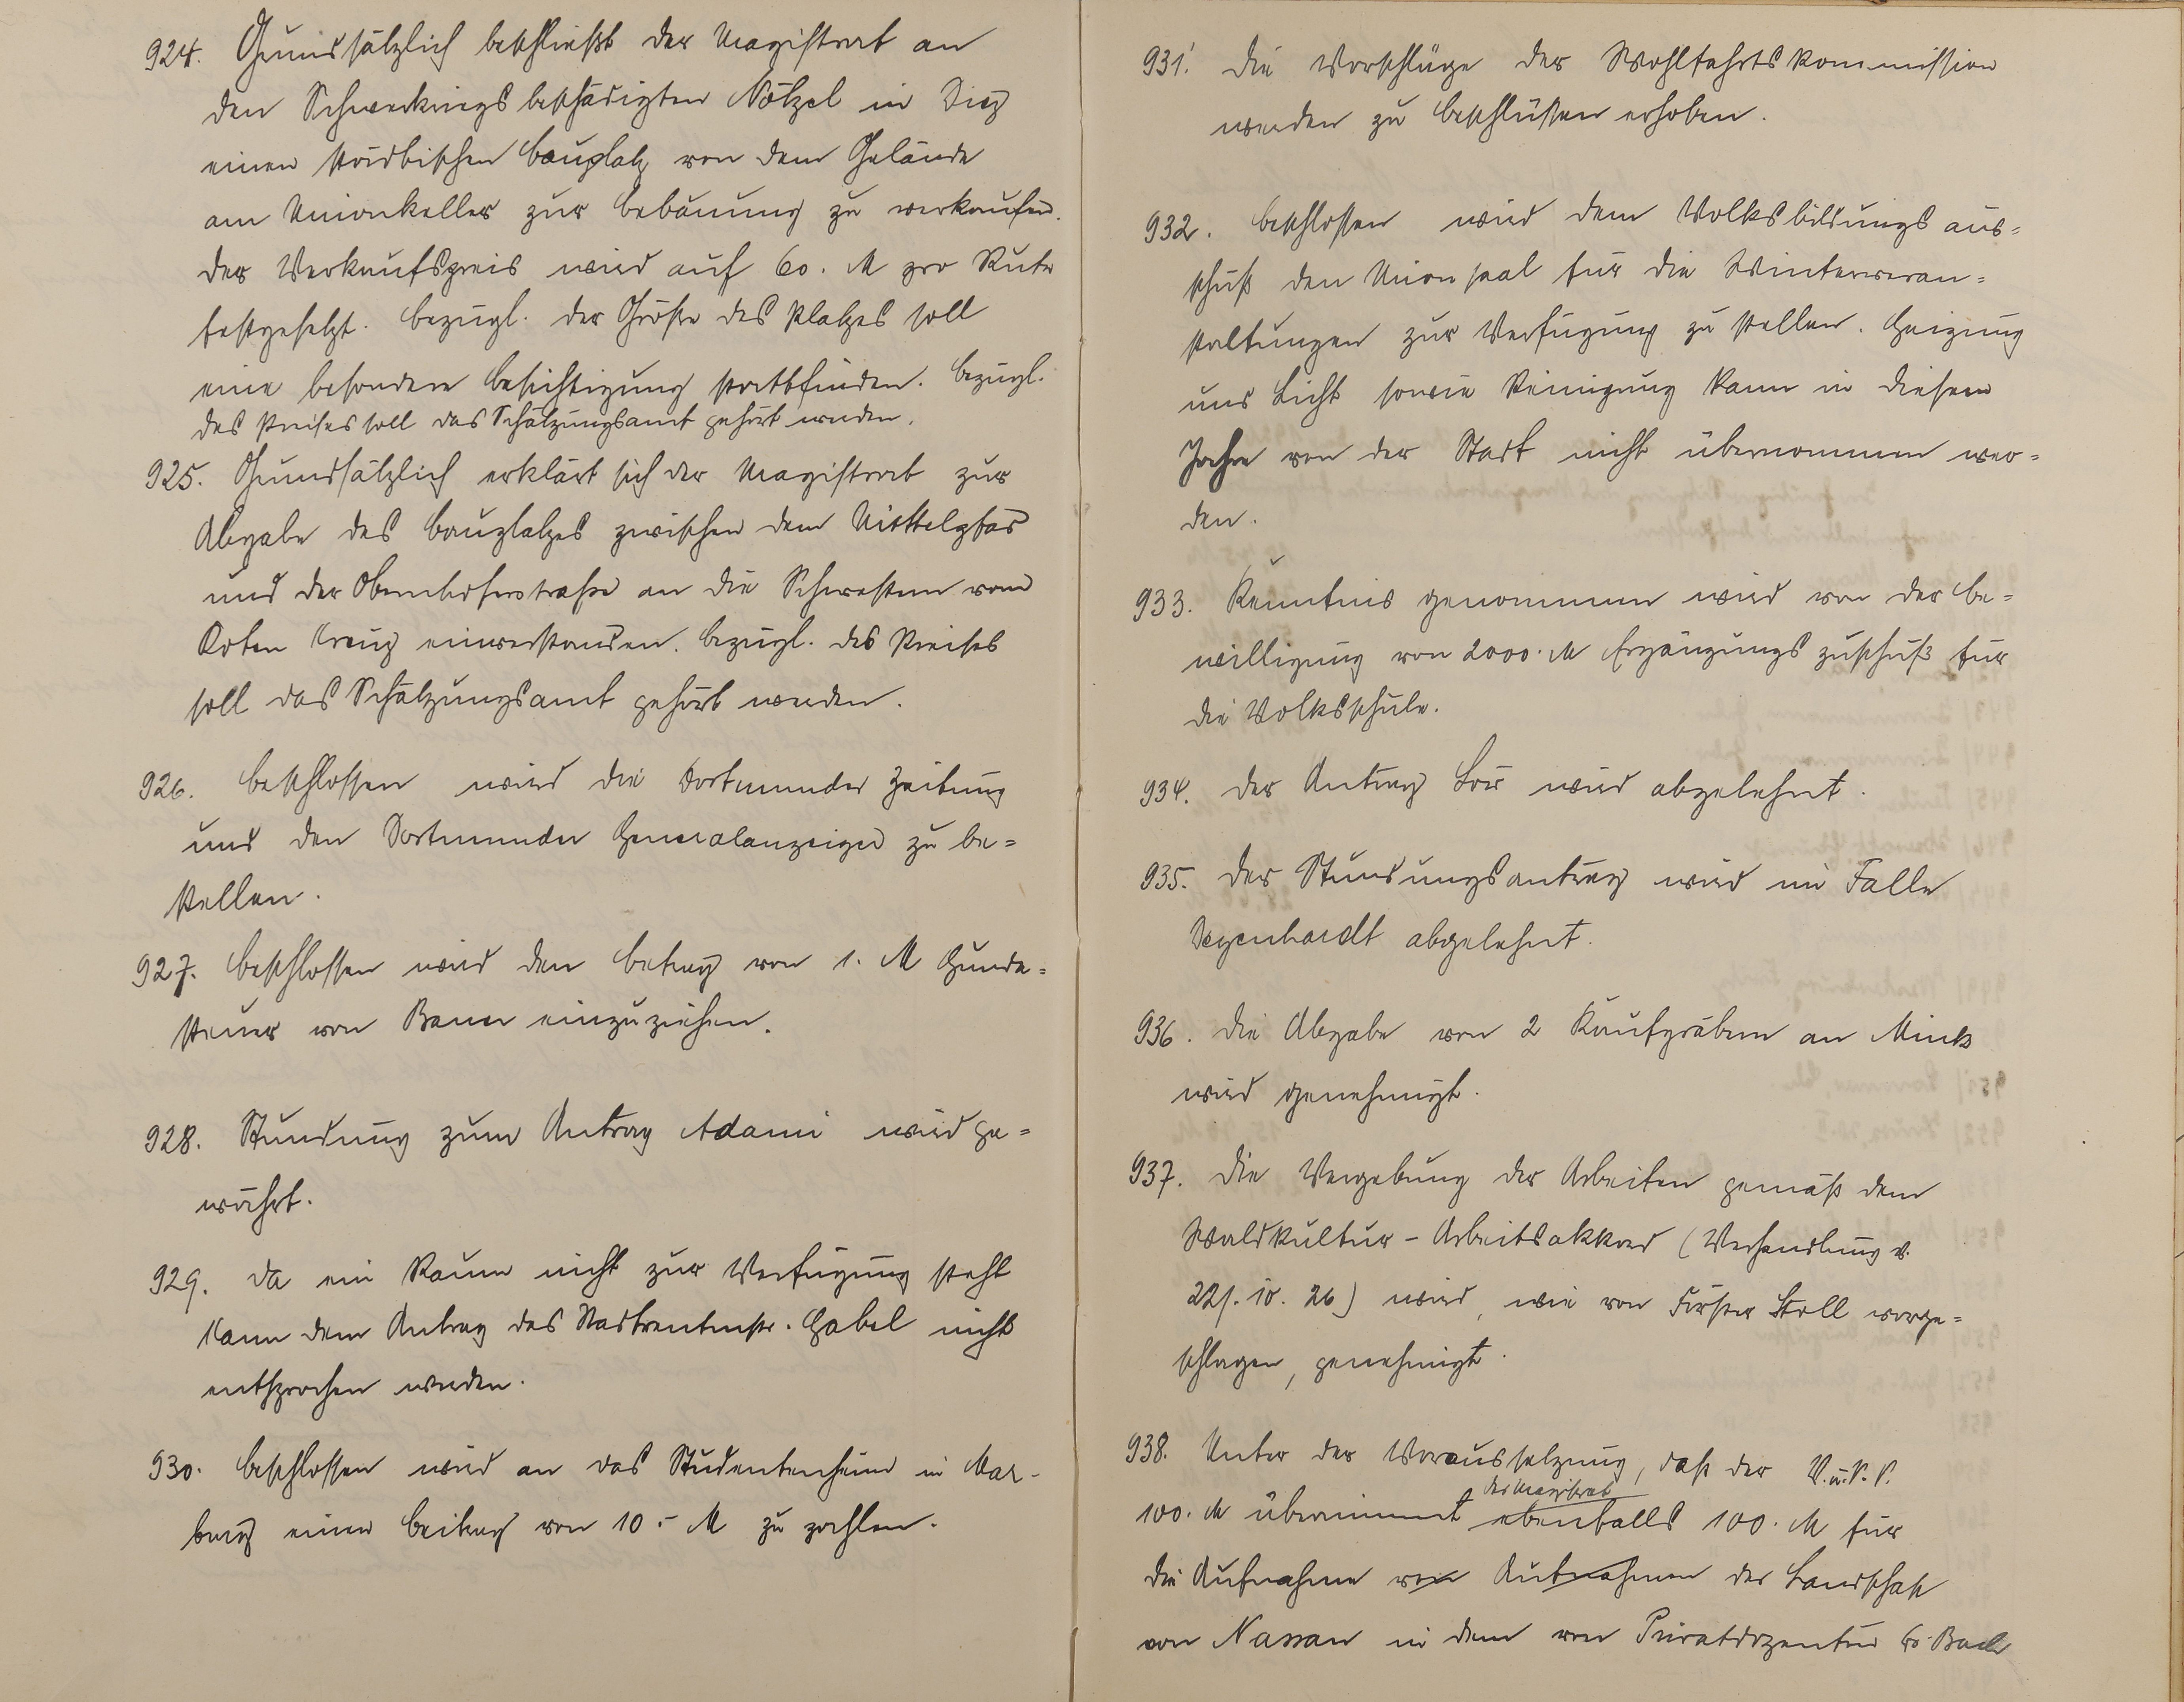 924. Grundsätzlich beschließt der Magistrat an
den Schwerkriegsbeschädigten Nötzel in Diez
einen städtischen Bauplatz von dem Gelände
am Unionkeller zur Bebauung zu verkaufen.
Der Verkaufspreis wird auf 60. M pro Rute
festgesetzt. Bezügl. der Größe des Platzes soll
eine besondere Besichtigung stattfinden. Bezügl.
des Preises soll das Schätzungsamt gehört werden.
925. Grundsätzlich erklärt sich der Magistrat zur
Abgabe des Bauplatzes zwischen dem Mittelpfad
und der Obernhoferstraße an die Schwestern vom
Roten Kreuz einverstanden. Bezügl. des Preises
soll das Schätzungsamt gehört werden.
926. Beschlossen wird die Dortmunder Zeitung
und den Dortmunder Generalanzeiger zu be=
stellen.
927. Beschlossen wird den Betrag von 1. M Hunde=
steuer von Bauer einzuziehen.
928. Stundung zum Antrag Adami wird ge=
währt.
929. Da ein Raum nicht zur Verfügung steht
kann dem Antrag des Stadtrentmstr. Gabel nicht
entsprochen werden.
930. Beschlossen wird an das Studentenheim in Mar-
burg einen Beitrag von 10.- M zu zahlen.
931. Die Vorschläge der Wohlfahrtskommission
werden zu Beschlüssen erhoben.
932. Beschlossen wird dem Volksbildungsaus=
schuß den Unionsaal für die Winterveran=
staltungen zur Verfügung zu stellen. Heizung
und Licht sowie Reinigung kann in diesem
Jahre von der Stadt nicht übernommen wer=
den.
933. Kenntnis genommen wird von der Be=
willigung von 2000. M Ergänzungszuschuß für
die Volksschule.
934. Der Antrag wird abgelehnt.
935. Der Stundungsantrag wird im Falle
Degenhardt abgelehnt.
936. Die Abgabe von 2 Kaufgräbern an Mink
wird genehmigt.
937. Die Vergebung der Arbeiten gemäß dem
Waldkultur-Arbeitsakkord (Verhandlung v.
22/. 10. 26) wird, wie von Förster Stoll vorge=
schlagen, genehmigt.
938. Unter der Voraussetzung, daß der V.u.V.V.
100. M übernimmt der Magistrat ebenfalls 100. M für
die Aufnahme von Aufnahmen der Landschaft
von Nassau in dem von Privatdozenten Bach